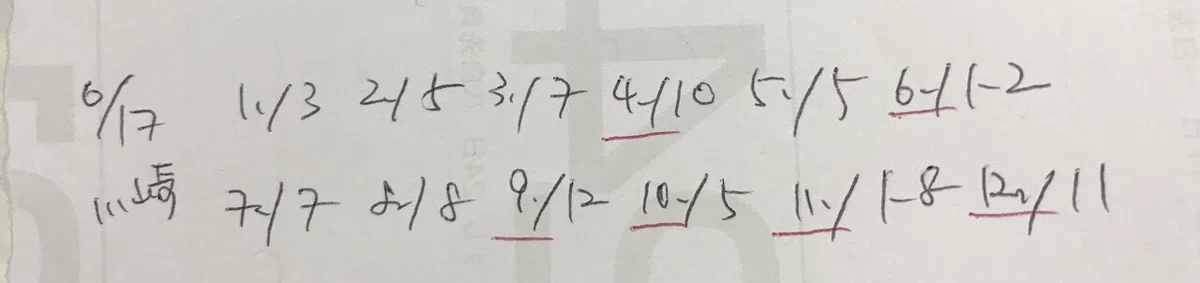 6/17 1./3 2/5 3./7 4./10 5./5 6./1-2
川崎 7./7 8./8 9./12 10./5 11./1-8 12./11